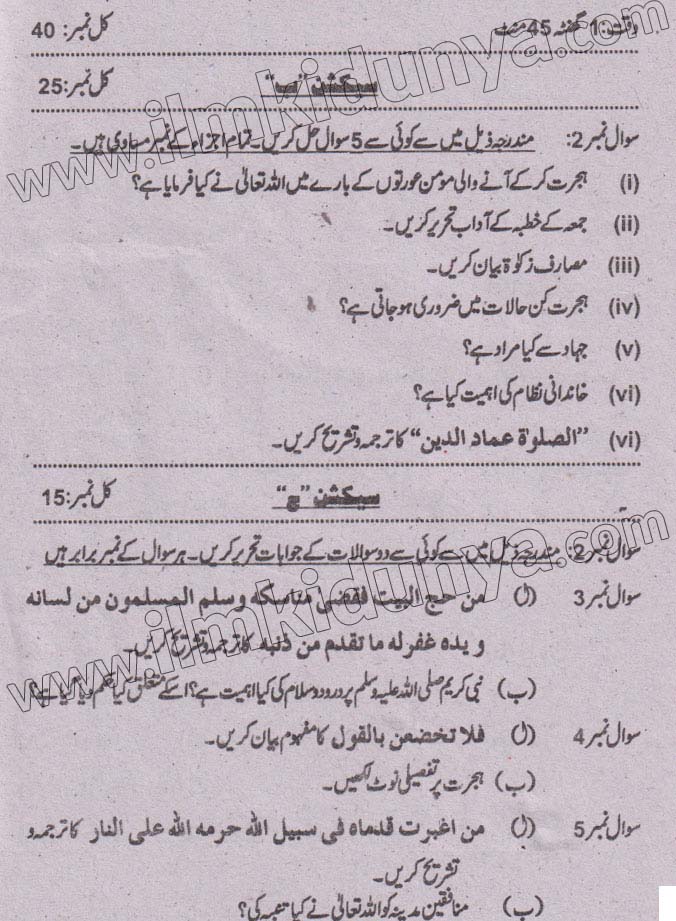 وقت: 1 گھنٹہ 45 منٹ کل نمبر: 40
سیکشن "ب" کل نمبر: 25
سوال نمبر 2: مندرجہ ذیل میں سے کوئی سے 5 سوال حل کریں۔ تمام اجزاء کے نمبر مساوی ہیں۔
(i) ہجرت کر کے آنے والی مومن عورتوں کے بارے میں اللہ تعالیٰ نے کیا فرمایا ہے؟
(ii) جمعہ کے خطبہ کے آداب تحریر کریں۔
(iii) مصارف زکوٰۃ بیان کریں۔
(iv) ہجرت کن حالات میں ضروری ہو جاتی ہے؟
(v) جہاد سے کیا مراد ہے؟
(vi) خاندانی نظام کی اہمیت کیا ہے؟
(vi) "الصلوٰۃ عماد الدین" کا ترجمہ و تشریح کریں۔
سیکشن "ج" کل نمبر: 15
سوال نمبر 2: مندرجہ ذیل میں سے کوئی سے دو سوالات کے جوابات تحریر کریں۔ ہر سوال کے نمبر برابر ہیں
سوال نمبر 3 (ا) من حج البیت فقضیٰ مناسکہ وسلم المسلمون من لسانہ
ویدہ غفر لہ ما تقدم من ذنبہ کا ترجمہ و تشریح کریں۔
(ب) نبی کریم صلی اللہ علیہ وسلم پر درود و سلام کی کیا اہمیت ہے؟ اسکے متعلق کیا حکم دیا گیا ہے؟
سوال نمبر 4 (ا) فلا تخضعن بالقول کا مفہوم بیان کریں۔
(ب) ہجرت پر تفصیلی نوٹ لکھیں۔
سوال نمبر 5 (ا) من اغبرت قدماہ فی سبیل اللہ حرمہ اللہ علی النار کا ترجمہ و
تشریح کریں۔
(ب) منافقین مدینہ کو اللہ تعالیٰ نے کیا تنبیہ کی؟
www.ilmkidunya.com
www.ilmkidunya.com